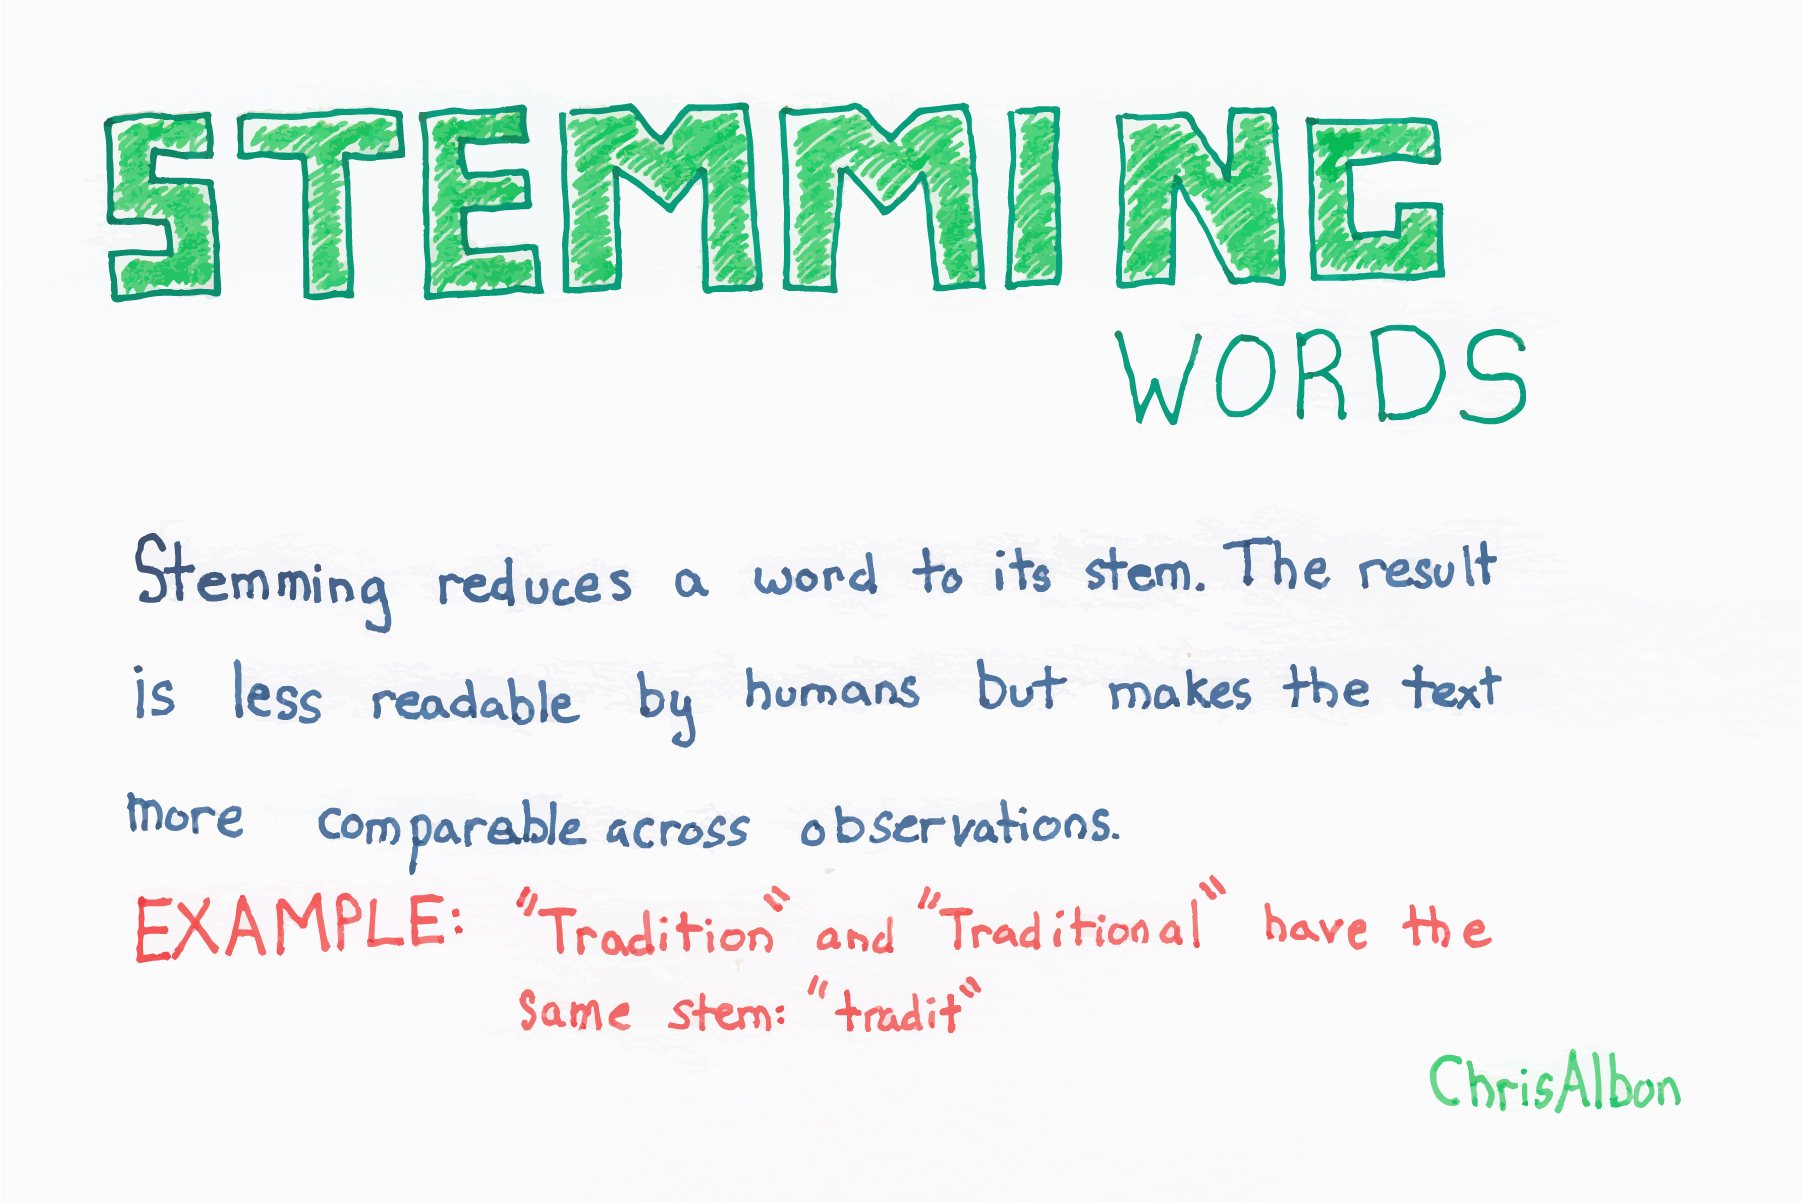 STEMMING
WORDS
Stemming reduces a word to its stem. The result
is less readable by humans but makes the text
more comparable across observations.
EXAMPLE: "Tradition" and "Traditional" have the
same stem: "tradit"
ChrisAlbon